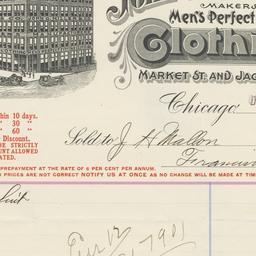 MAKERS
Men's Perfect
Clothi
MARKET ST. AND JAC
Chicago,
thin 10 days.
" 30 "
" 60 "
Discount.
BE STRICTLY
UNT ALLOWED
ATED.
Sold to J. H. Mallon
PREPAYMENT AT THE RATE OF 6 PER CENT PER ANNUM.
PRICES ARE NOT CORRECT NOTIFY US AT ONCE AS NO CHANGE WILL BE MADE AT TIME
Suit
7901